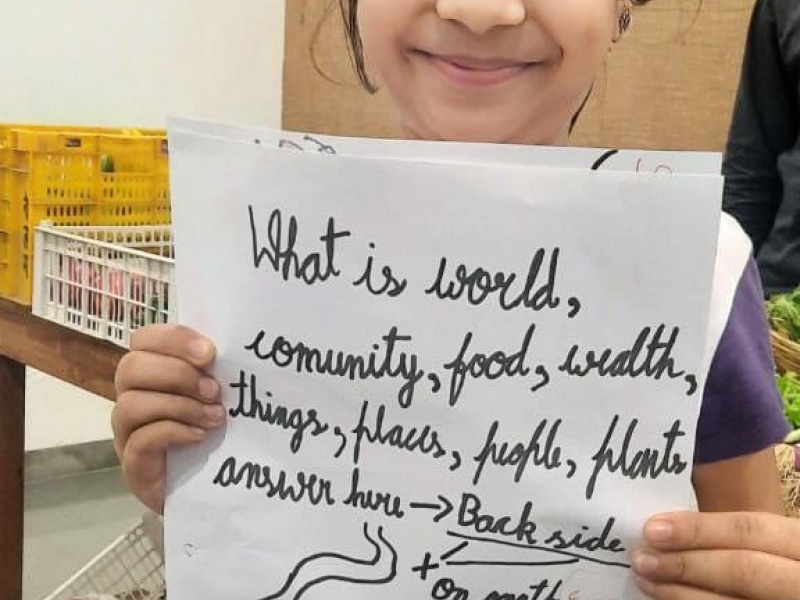 What is world,
comunity, food, wealth,
things, places, people, plants
answer here → Back side
+
on